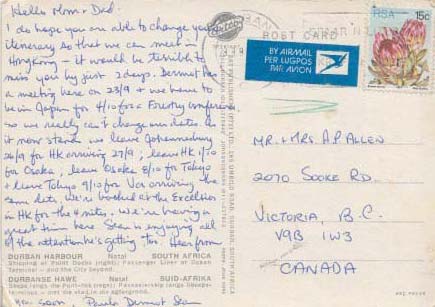 Hello Mom + Dad.
I do hope you are able to change your
itinerary so that we can meet in
Hongkong - it would be terrible to
miss you by just 2 days. Dermot has
a meeting here on 23/9 + we have to
be in Japan for 4/10 for a Forestry Conference
so we really can't change our dates. As
it now stands we leave Johannesburg
26/9 for HK arriving 27/9; leave HK 1/10
for Osaka; leave Osaka 8/10 for Tokyo
+ leave Tokyo 9/10 for Van arriving the
same date. We're booked at the Excelsior
in HK for the 4 nites. We're having a
great time here Sean is enjoying all
of the attention he's getting Hear from
you soon, Paula Dermot Sean
DURBAN HARBOUR Natal SOUTH AFRICA
Shipping at Point Docks (right); Passenger Liner at Ocean
Terminal — and the City beyond.
DURBANSE HAWE Natal SUID-AFRIKA
POST CARD
BY AIRMAIL
PER LUGPOS
PAR AVION
RSA 15c
MR. + MRS A P ALLEN
2070 SOOKE RD.
VICTORIA, B.C.
V9B 1W3
CANADA